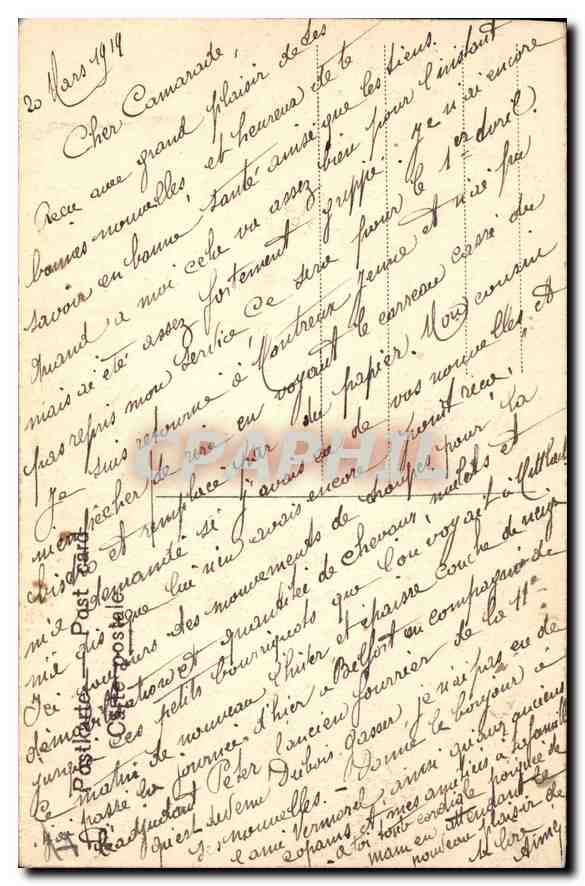 20 Mars 1919
Cher Camarade,
Reçu avec grand plaisir de tes
bonnes nouvelles, et heureux de te
savoir en bonne santé ainsi que les tiens.
Quand a moi cela va assez bien pour l'instant
mais ai été assez fortement grippé. Je n'ai encore
pas repris mon service ce sera pour le 1er Avril.
Je suis retourné à Montreux Jeune et n'ai pu
m'empêcher de rire en voyant le carreau cassé du
et remplacé par du papier. Mon cousin
m'a demandé si j'avais eu de vos nouvelles et
m'a dis que lui n'en avais encore point reçu.
Ici toujours des mouvements de troupes pour la
démobilisation et quantité de chevaux, mulets et
jusqu'a ces petits bourriquots que l'on voyait à
Ce matin de nouveau l'hiver et épaisse couche de neige
passé la journée d'hier à Belfort en compagnie de
l'adjudant Peter l'ancien fourrier de la 11e
qu'est devenu Dubois Gasser, je n'ai pas eu de
ses nouvelles. - Donne le bonjour à
l'ami Vermorel ainsi qu'aux anciens
copains et mes amitiés à ta famille
a toi tout cordiale poignée de
main en attendant le
nouveau plaisir de
te lire
Aimé
Postkarte — Post card
Carte postale
CPAPHIL